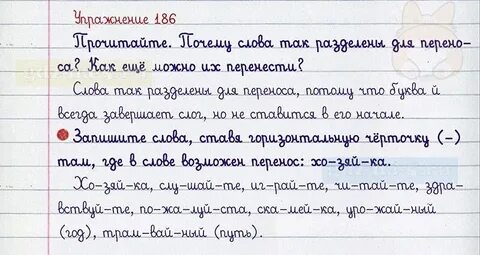 Упражнение 186
Прочитайте. Почему слова так разделены для перено-
са? Как ещё можно их перенести?
Слова так разделены для переноса, потому что буква й
всегда завершает слог, но не ставится в его начале.
Запишите слова, ставя горизонтальную чёрточку (-)
там, где в слове возможен перенос: хо-зяй-ка.
Хо-зяй-ка, слу-шай-те, иг-рай-те, чи-тай-те, здра-
вствуй-те, по-жа-луй-ста, ска-мей-ка, уро-жай-ный
(год), трам-вай-ный (путь).